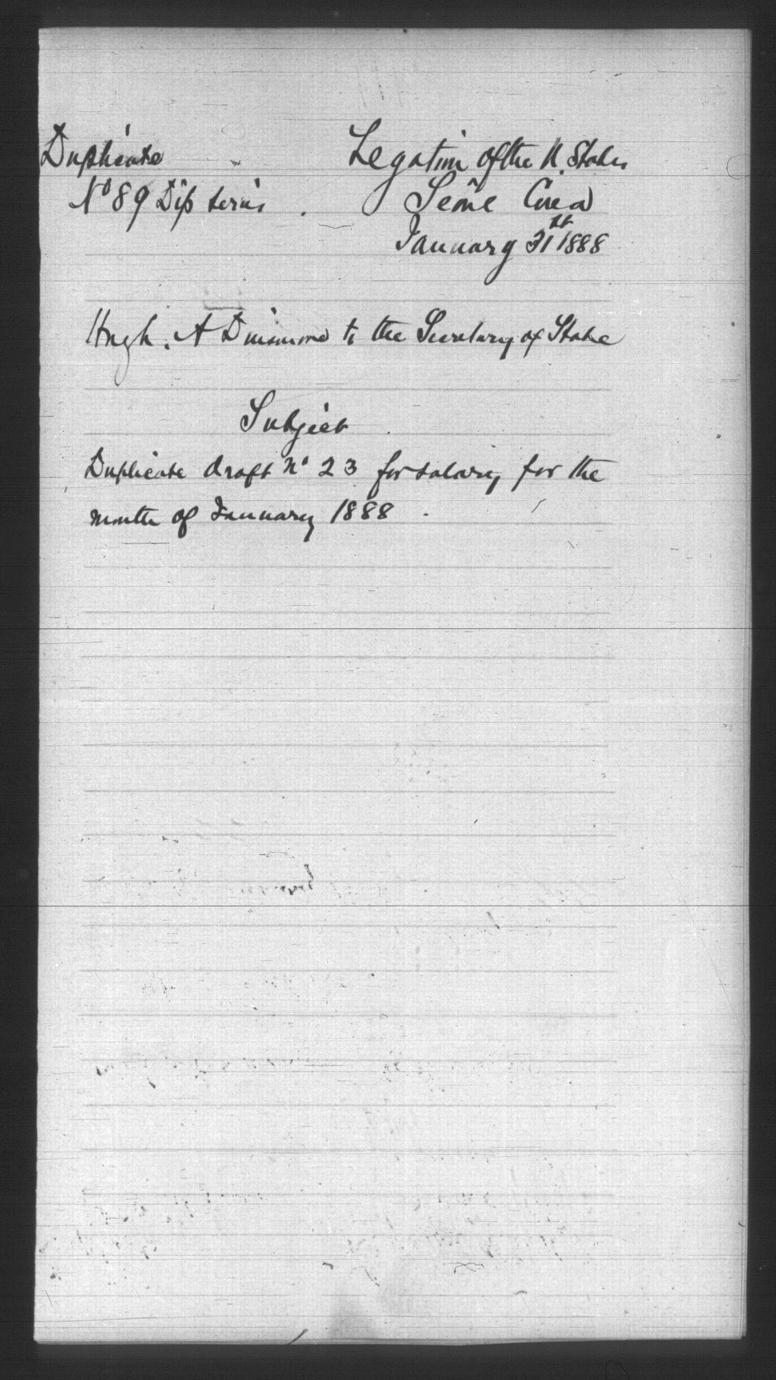 Duplicate
No 89 Dip series.
Legation of the U. States
Séoul Corea
January 31st 1888
Hugh. A Dinsmore to the Secretary of State
Subject
Duplicate draft No 23 for salary for the
month of January 1888.